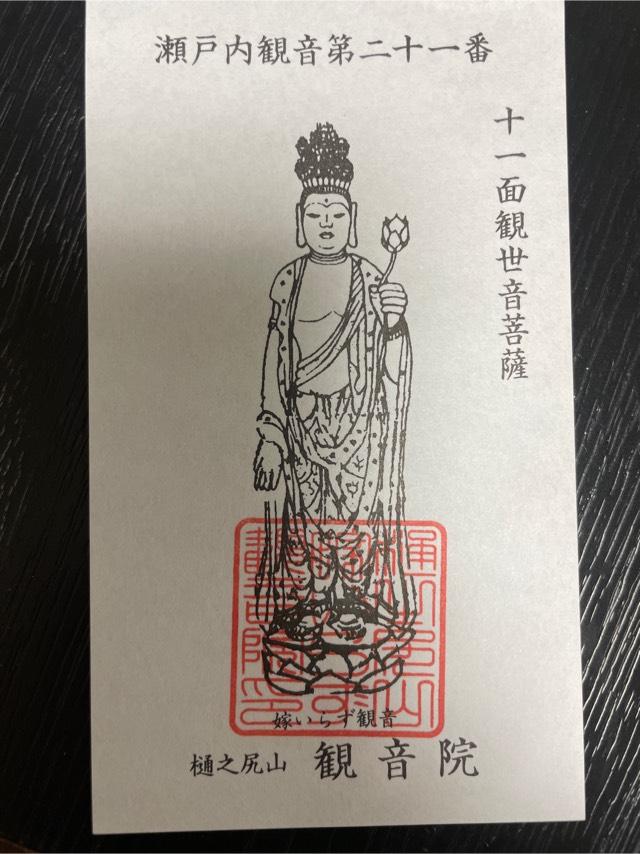 瀬戸内観音第二十一番
十一面観世音菩薩
嫁いらず観音
樋之尻山 観音院